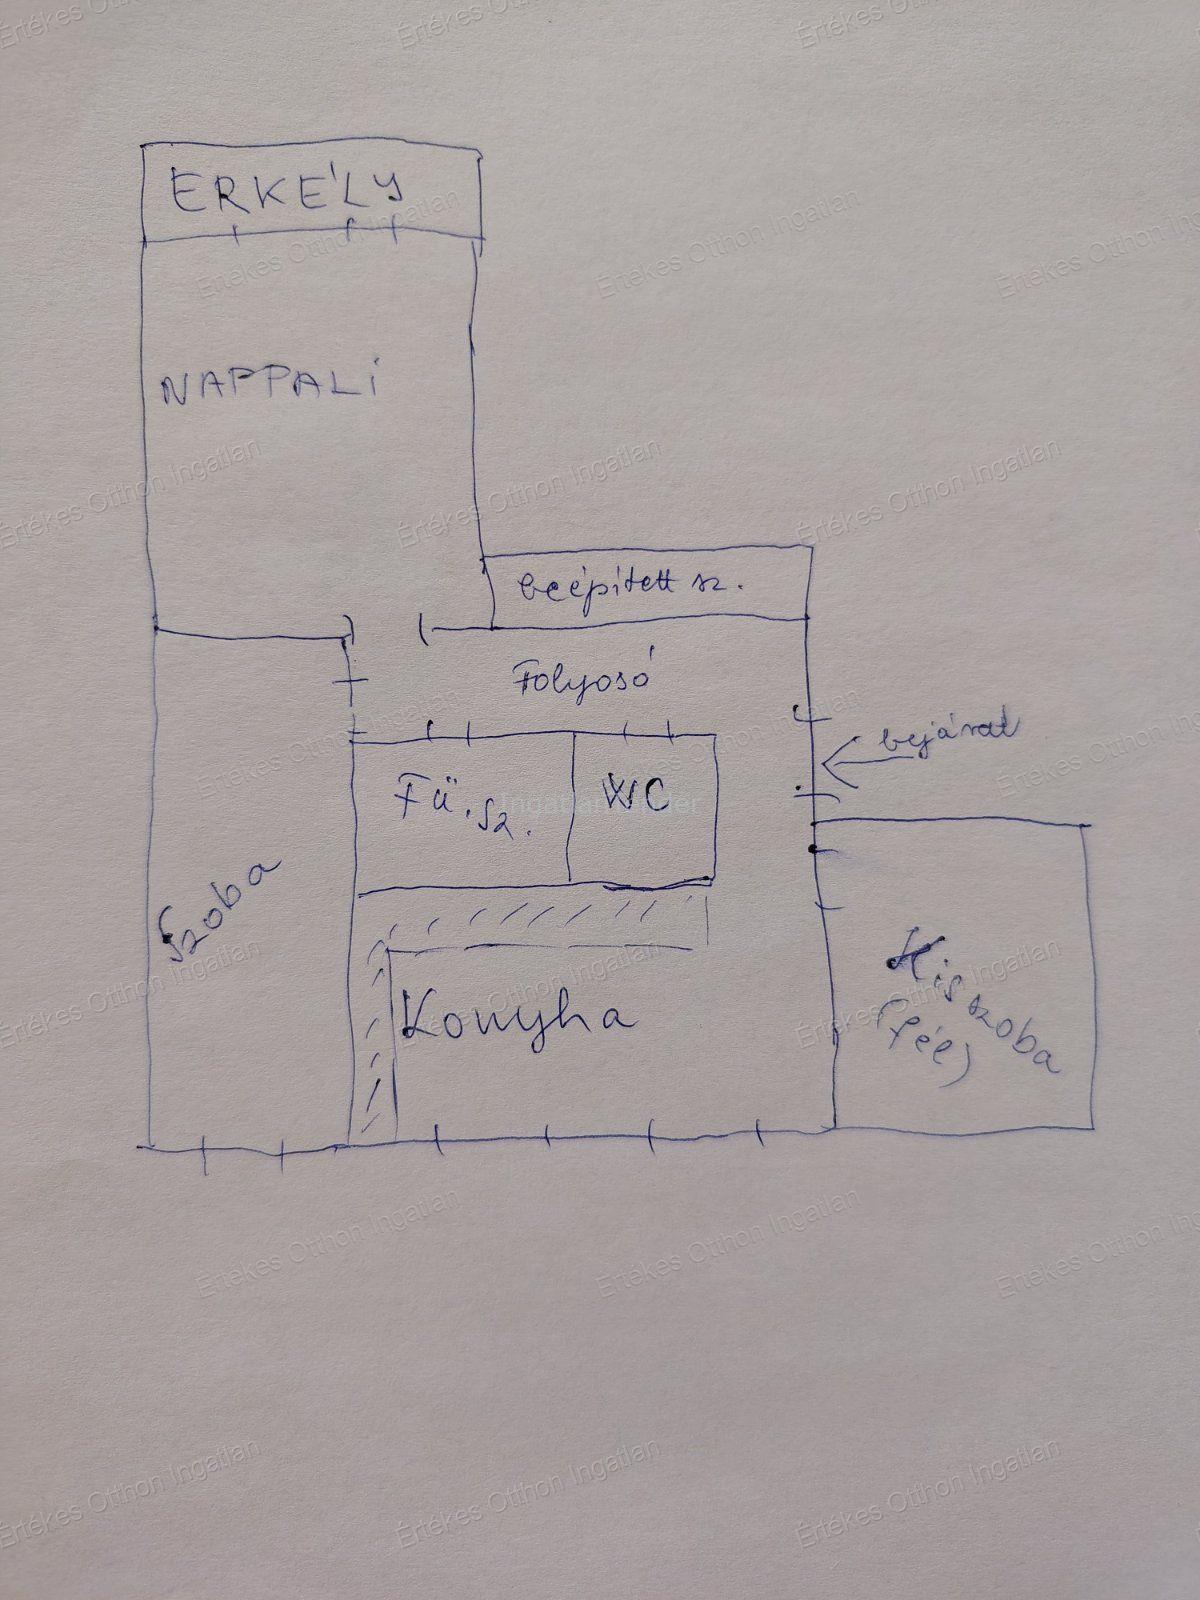 ERKÉLY
NAPPALI
beépített sz.
Folyosó
bejárat
Fü.sz.
WC
Szoba
Konyha
Kisszoba
(fél)
Értékes Otthon Ingatlan